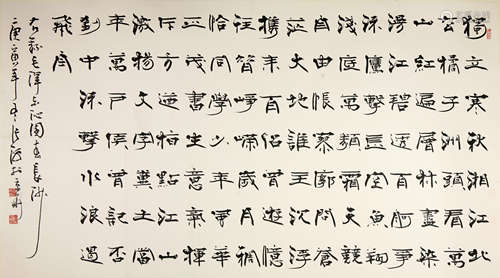 獨立寒秋湘江北
去橘子洲頭看萬
山紅遍層林盡染
漫江碧透百舸爭
流鷹擊長空魚翔
淺底萬類霜天競
自由悵寥廓問蒼
茫大地誰主沉浮
攜來百侶曾遊憶
往昔崢嶸歲月稠
恰同學少年風華
正茂書生意氣揮
斥方遒指點江山
激揚文字糞土當
年萬戶侯曾記否
到中流擊水浪遏
飛舟
右錄毛澤東沁園春長沙
庚寅年冬張海於